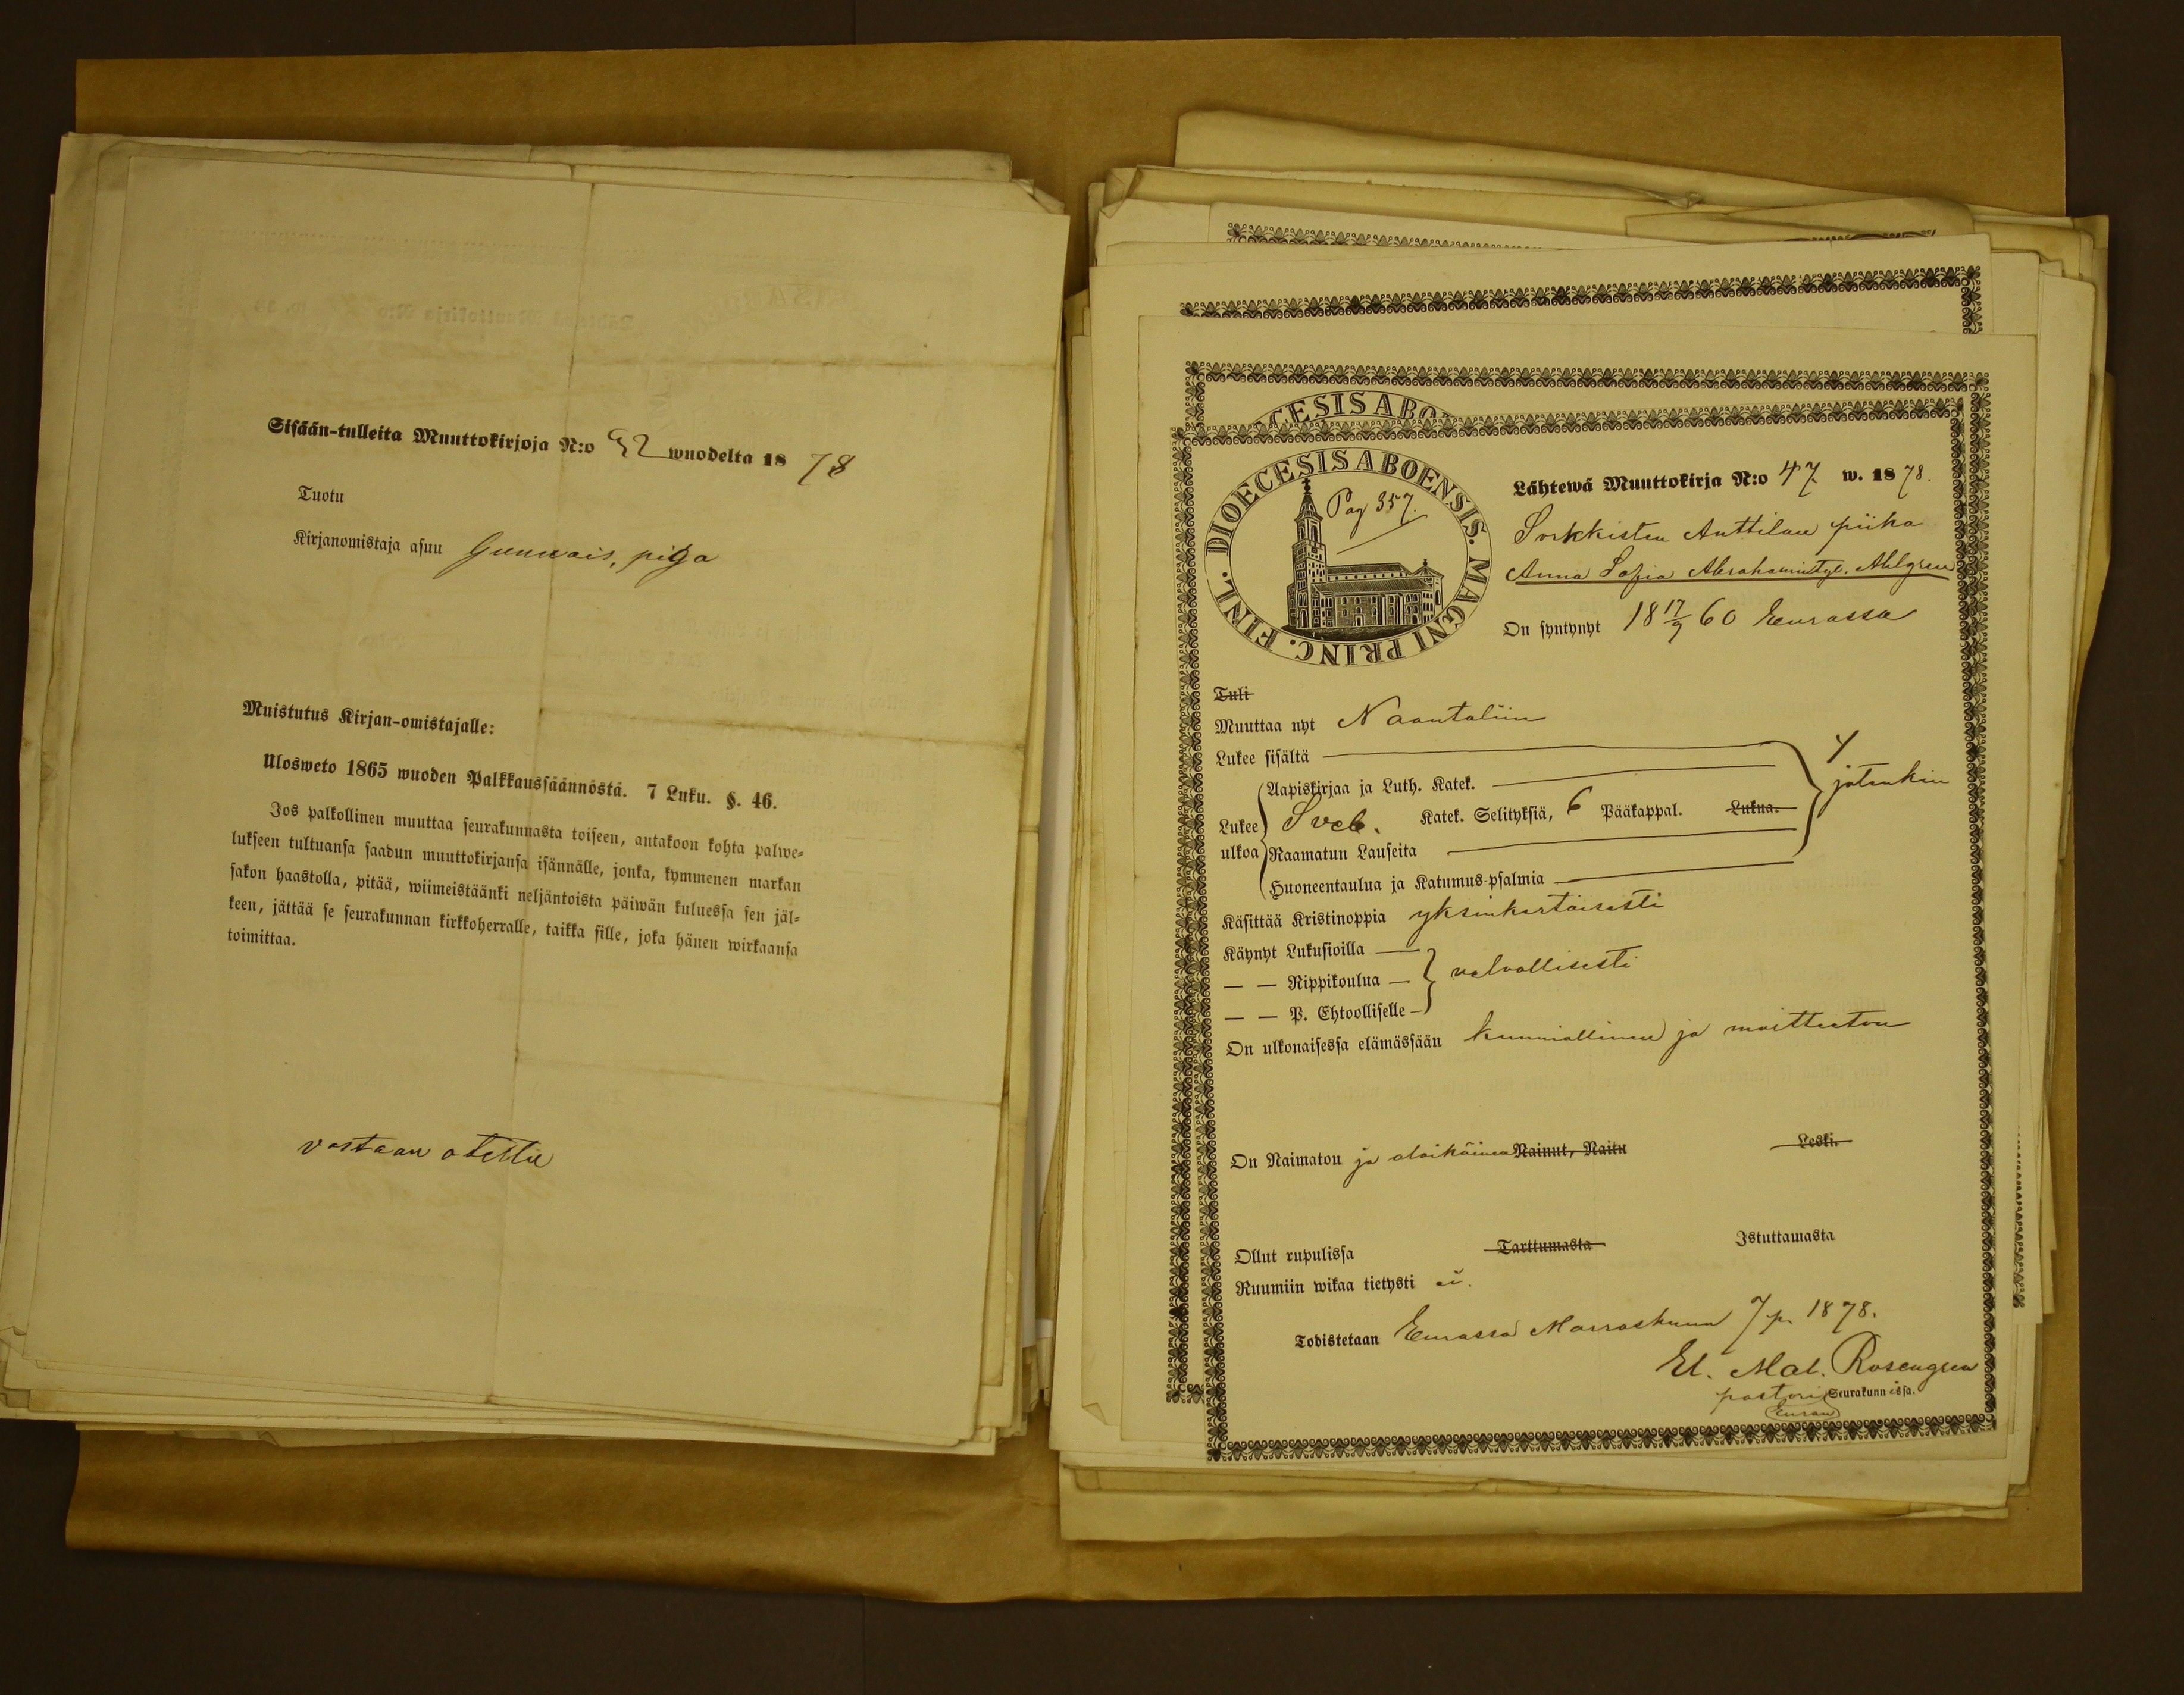 Sisään-tulleita Muuttokirjoja N:o 52 wuodelta 1878
Tuotu
Kirjanomistaja asuu Gunnais, piga
Muistutus Kirjan-omistajalle:
Ulosweto 1865 wuoden Palkkaussäännöstä. 7 Luku. §. 46.
Jos palkollinen muuttaa seurakunnasta toiseen, antakoon kohta palwe-
lukseen tultuansa saadun muuttokirjansa isännälle, jonka, kymmenen markan
sakon haastolla, pitää, wiimeistäänki neljäntoista päiwän kuluessa sen jäl-
keen, jättää se seurakunnan kirkkoherralle, taikka sille, joka hänen wirkaansa
toimittaa.
vastaan otettu
CESIS ABO
DIOECESIS ABOENSIS. MAGNI PRINC. FINL.
Pag 357.
Lähtewä Muuttokirja N:o 47 w. 1878.
Sorkkisten Anttilan piika
Anna Sofia Abrahamintyt. Ahlgren
On syntynyt 18 17/9 60 Eurassa
Tuli
Muuttaa nyt Naantaliin
Lukee sisältä
Lukee ulkoa
Aapiskirjaa ja Luth. Katek.
Sveb. Katek. Selityksiä, 6 Pääkappal. Lukua.
Raamatun Lauseita
Huoneentaulua ja Katumus-psalmia
jotenkin
Käsittää Kristinoppia yksinkertaisesti
Käynyt Lukusioilla
— — Rippikoulua — velvollisesti
— — P. Ehtoolliselle
On ulkonaisessa elämässään kunniallinen ja moitteeton
On Naimaton ja alaikäinen Nainut, Naitu Leski.
Ollut rupulissa Tarttumasta Istuttamasta
Ruumiin wikaa tietysti ei.
Todistetaan Eurassa Marraskuun 7 p. 1878.
El. Mat. Rosengren
pastori Seurakunnissa.
Euran